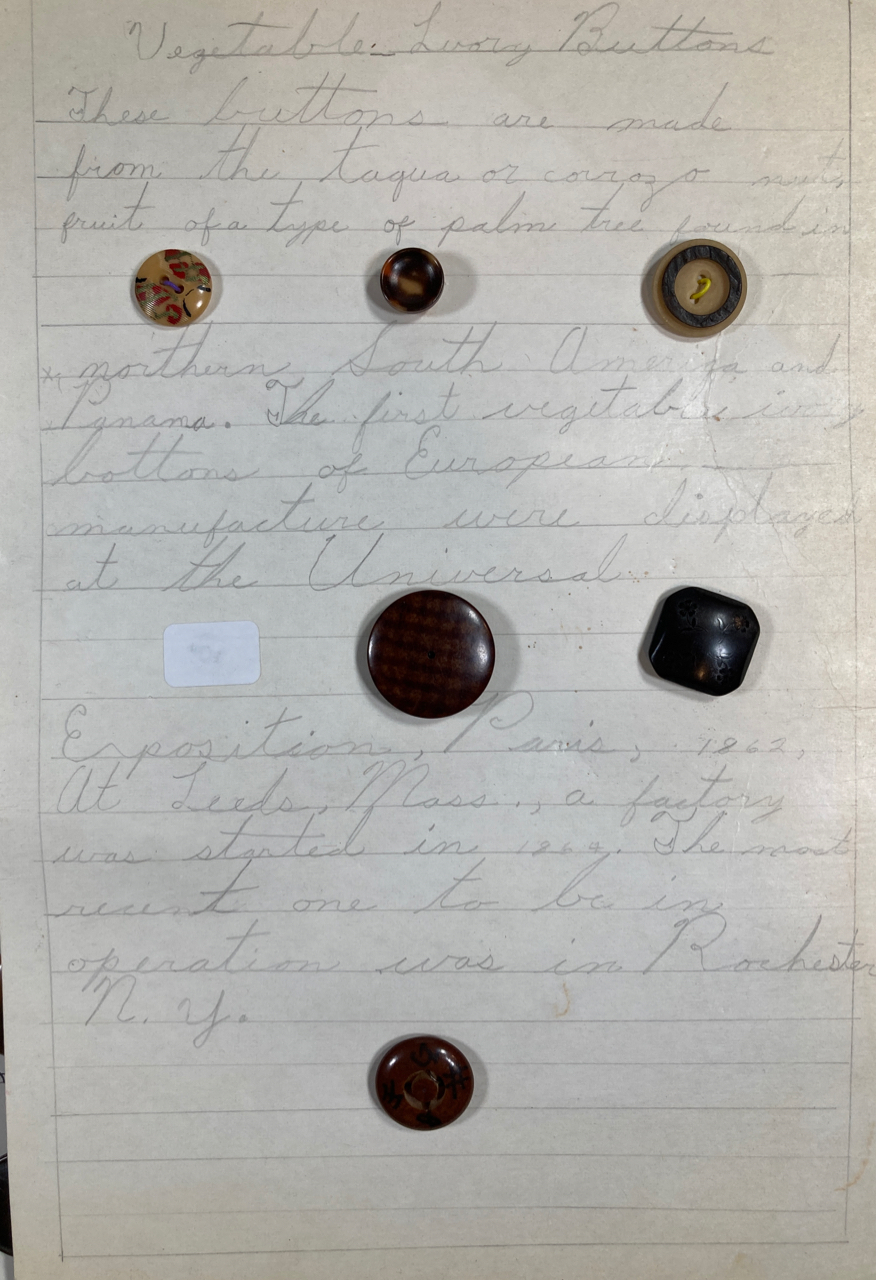 Vegetable Ivory Buttons
These buttons are made
from the tagua or corozo nut,
fruit of a type of palm tree found in
northern South America and
Panama. The first vegetable ivory
bottons of European
manufacture were displayed
at the Universal
Exposition, Paris, 1862,
At Leeds, Mass., a factory
was started in 1864. The most
recent one to be in
operation was in Rochester
N. Y.